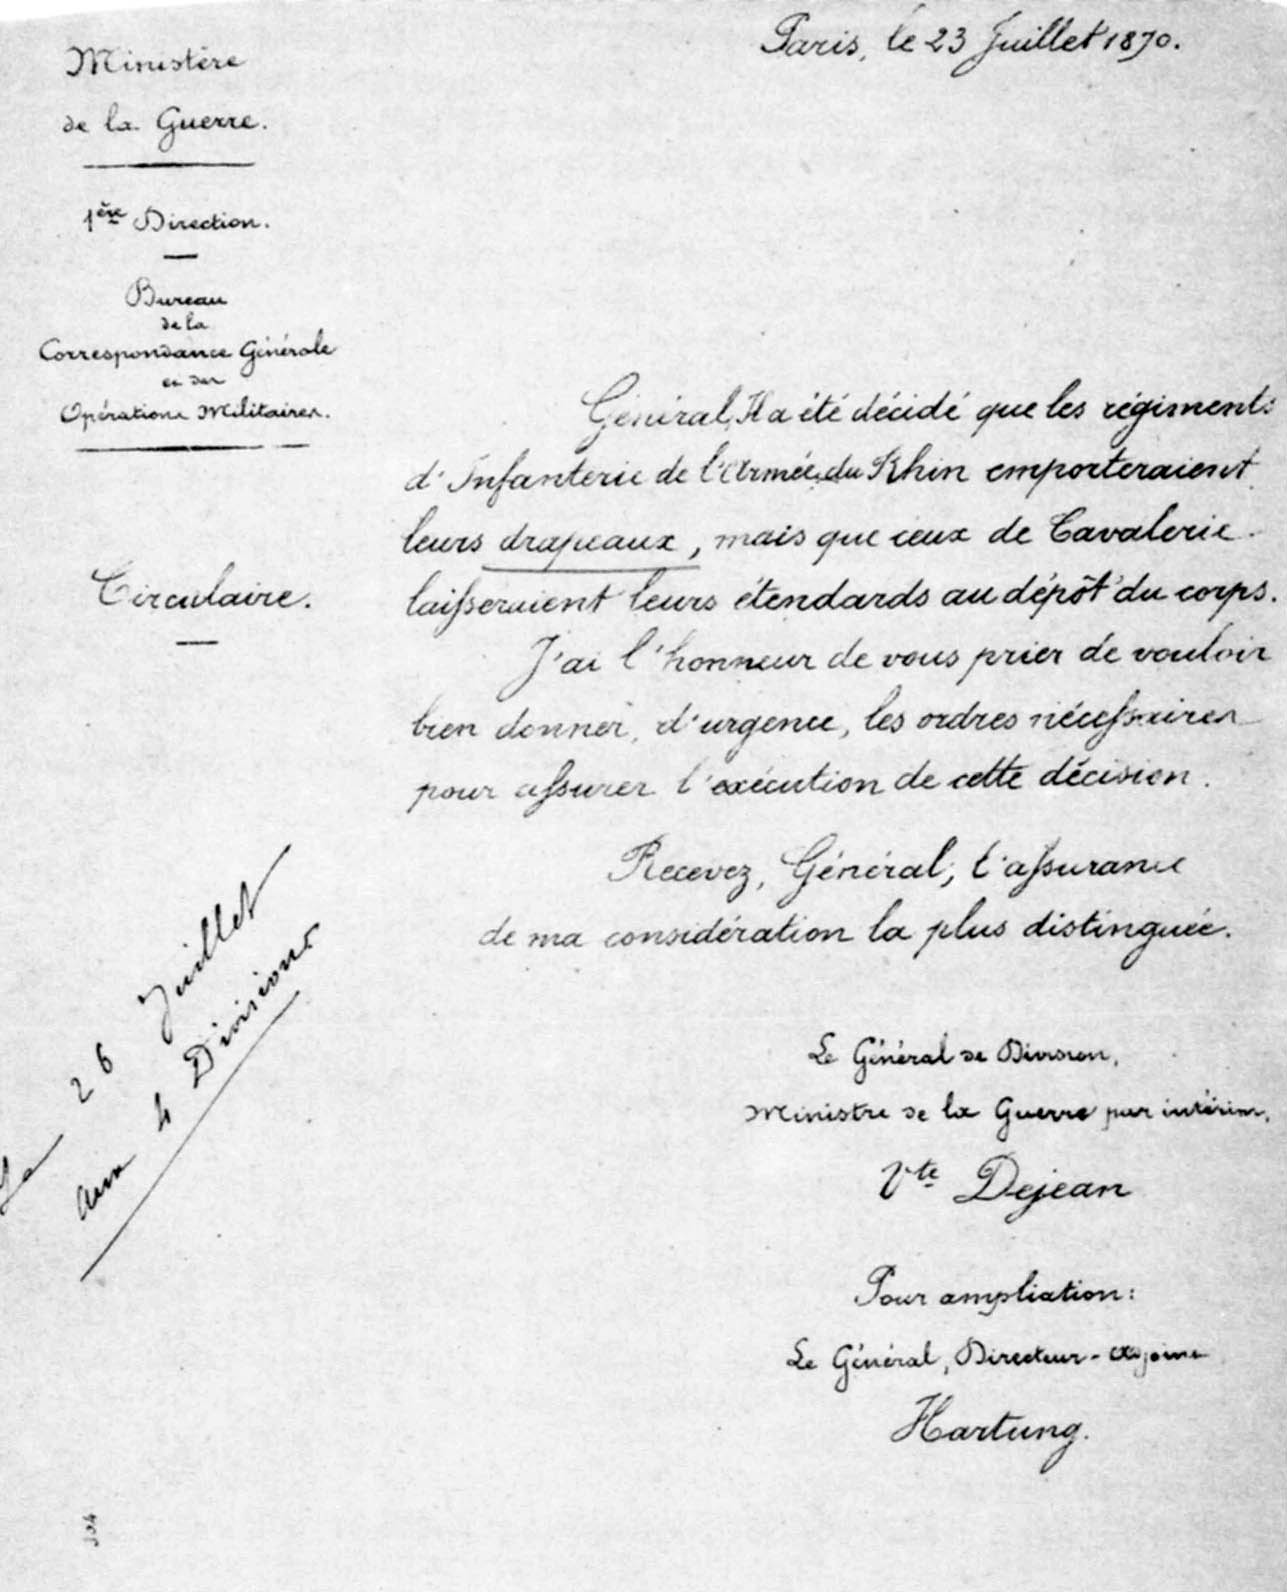 Paris, le 23 Juillet 1870.
Ministère
de la Guerre.
1ère Direction.
Bureau
de la
Correspondance Générale
et des
Opérations Militaires.
Circulaire.
Général, Il a été décidé que les régiments
d'Infanterie de l'Armée du Rhin emporteraient
leurs drapeaux, mais que ceux de Cavalerie
laisseraient leurs étendards au dépôt du corps.
J'ai l'honneur de vous prier de vouloir
bien donner, d'urgence, les ordres nécessaires
pour assurer l'exécution de cette décision.
Recevez, Général, l'assurance
de ma considération la plus distinguée.
Le Général de Division,
Ministre de la Guerre par intérim,
Vte Dejean
Pour ampliation:
Le Général, Directeur-Adjoint
Hartung.
Le 26 Juillet
aux 4 Divisions